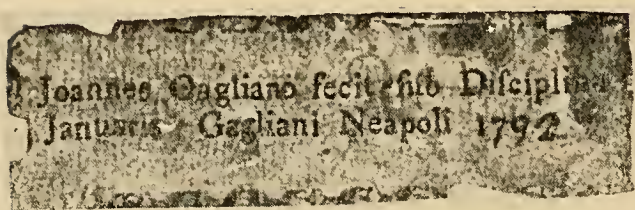 Joannes Gagliano fecit sub Disciplina
Januarii Gagliani Neapoli 1792